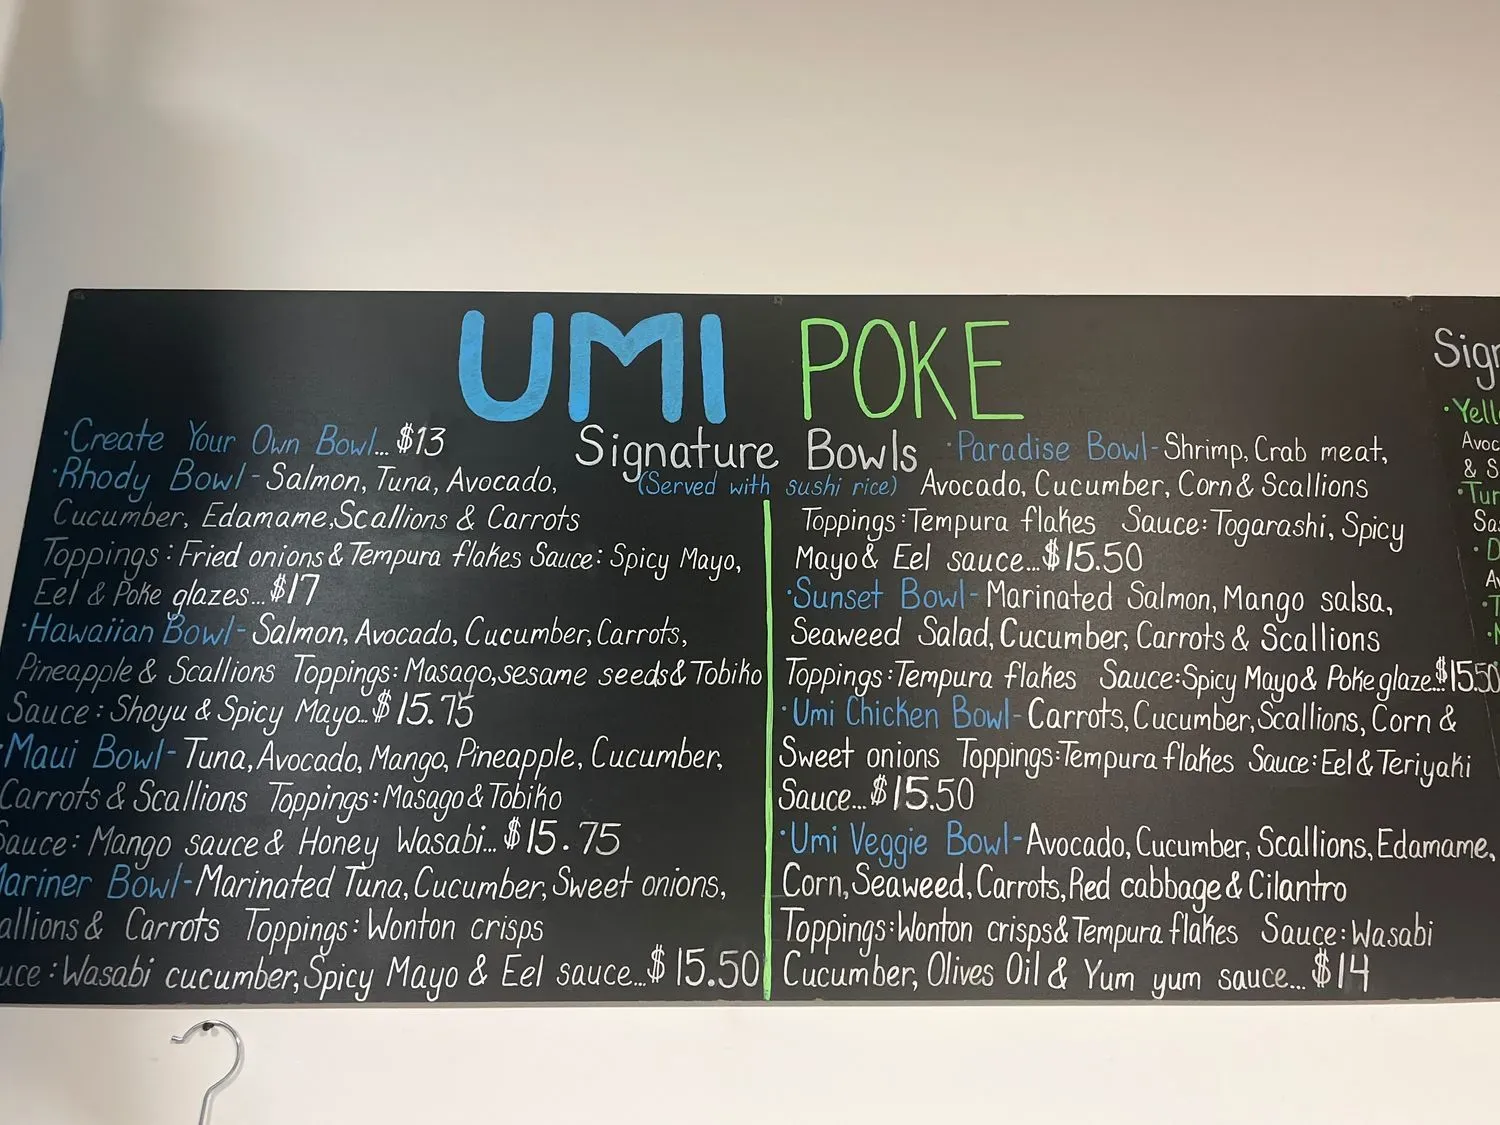 UMI POKE
Signature Bowls
(Served with sushi rice)
·Create Your Own Bowl...$13
·Rhody Bowl-Salmon, Tuna, Avocado,
Cucumber, Edamame,Scallions & Carrots
Toppings:Fried onions & Tempura flakes Sauce: Spicy Mayo,
Eel & Poke glazes...$17
·Hawaiian Bowl-Salmon, Avocado, Cucumber, Carrots,
Pineapple & Scallions Toppings: Masago,sesame seeds & Tobiko
Sauce: Shoyu & Spicy Mayo...$15.75
·Maui Bowl-Tuna, Avocado, Mango, Pineapple, Cucumber,
Carrots & Scallions Toppings: Masago & Tobiko
Sauce: Mango sauce & Honey Wasabi...$15.75
ariner Bowl-Marinated Tuna, Cucumber, Sweet onions,
allions & Carrots Toppings: Wonton crisps
uce: Wasabi cucumber, Spicy Mayo & Eel sauce...$15.50
·Paradise Bowl-Shrimp, Crab meat,
Avocado, Cucumber, Corn & Scallions
Toppings:Tempura flakes Sauce: Togarashi, Spicy
Mayo & Eel sauce...$15.50
·Sunset Bowl-Marinated Salmon, Mango salsa,
Seaweed Salad, Cucumber, Carrots & Scallions
Toppings:Tempura flakes Sauce:Spicy Mayo & Poke glaze...$15.50
·Umi Chicken Bowl-Carrots, Cucumber, Scallions, Corn &
Sweet onions Toppings:Tempura flakes Sauce: Eel & Teriyaki
Sauce...$15.50
·Umi Veggie Bowl-Avocado, Cucumber, Scallions, Edamame,
Corn, Seaweed, Carrots, Red cabbage & Cilantro
Toppings:Wonton crisps & Tempura flakes Sauce: Wasabi
Cucumber, Olives Oil & Yum yum sauce...$14
Sign
·Yell
Avoc
& S
·Tun
Sa
·D
Av
·T